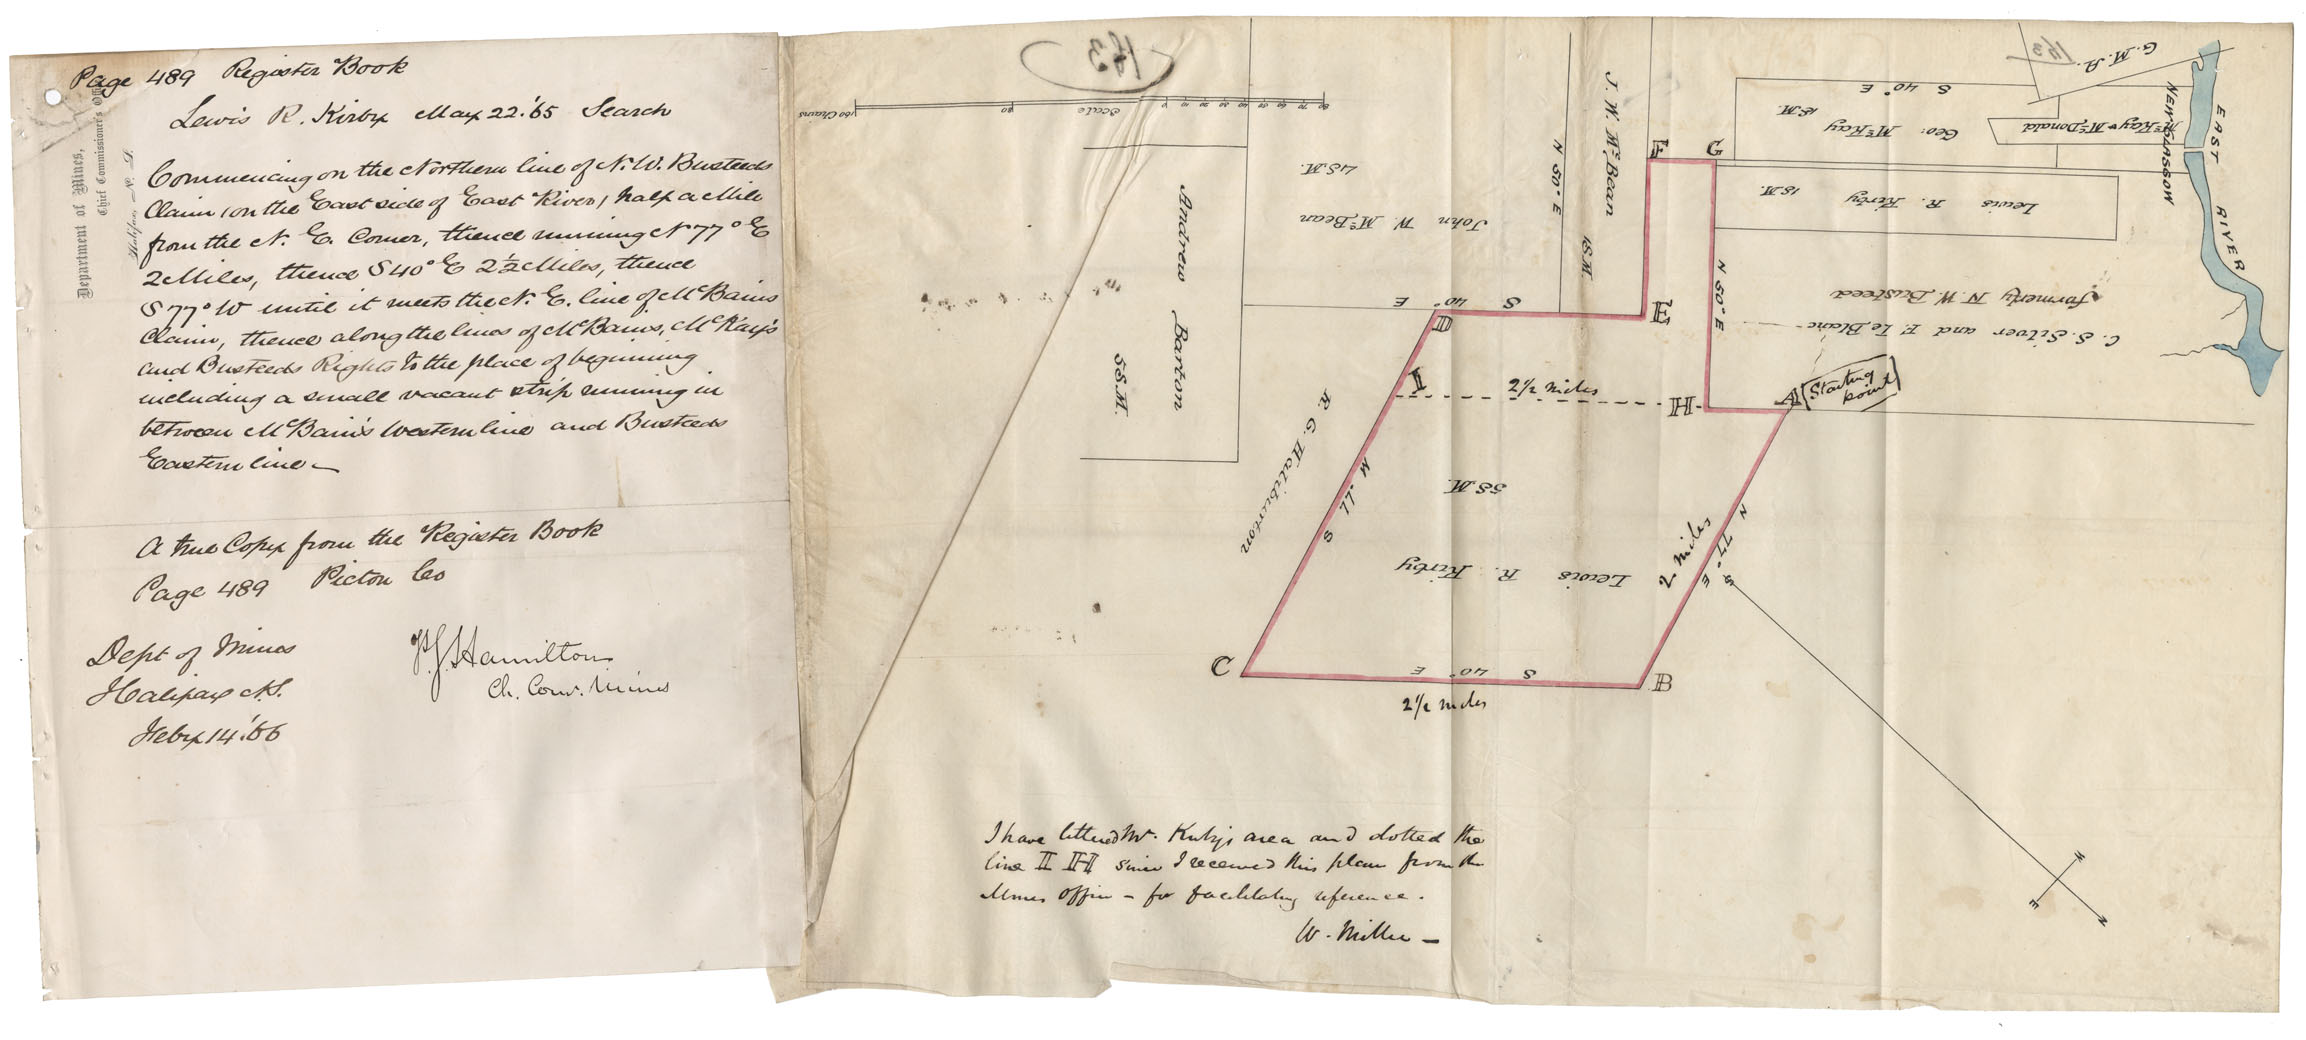 Page 489 Register Book
Lewis R. Kirby May 22.'65 Search
Department of Mines,
Chief Commissioner's Office
Halifax, N. S.
Commencing on the Northern line of N. W. Busteeds
Claim (on the East side of East River) half a Mile
from the N. E. Corner, thence running N 77° E
2 Miles, thence S 40° E 2½ Miles, thence
S 77° W until it meets the N. E. line of McBains
Claim, thence along the lines of McBains, McKay's
and Busteeds Rights to the place of beginning
including a small vacant strip running in
between McBain's Western line and Busteeds
Eastern line—
A true Copy from the Register Book
Page 489 Pictou Co
Dept of Mines
Halifax N.S.
Feby 14.'66
Hamilton
Ch. Com. Mines
163
160 Chains
80
Scale
0 10 20 30 40 50 60 70 80
Andrew Barton
5 S.M.
4 S.M.
John W. McBean
N 50° E
J. W. McBean
1 S.M.
S 40° E
Geo: McKay
1 S.M.
McKay & McDonald
G. M. A.
163
NEW GLASGOW
EAST RIVER
Lewis R. Kirby
1 S.M.
C. S. Silver and F. Le Blanc
formerly N. W. Busteed
N 50° E
F
G
E
D
S 40° E
I
2½ miles
H
A
(Starting
point)
R. G. Haliburton
S 77 W
5 S.M.
Lewis R. Kirby
2 miles
N 77° E
C
S 40° E
B
2½ miles
S
N
E
W
I have lettered Mr. Kirby's area and dotted the
line I H since I received this plan from the
Mines Office – for facilitating reference.
W. Miller –